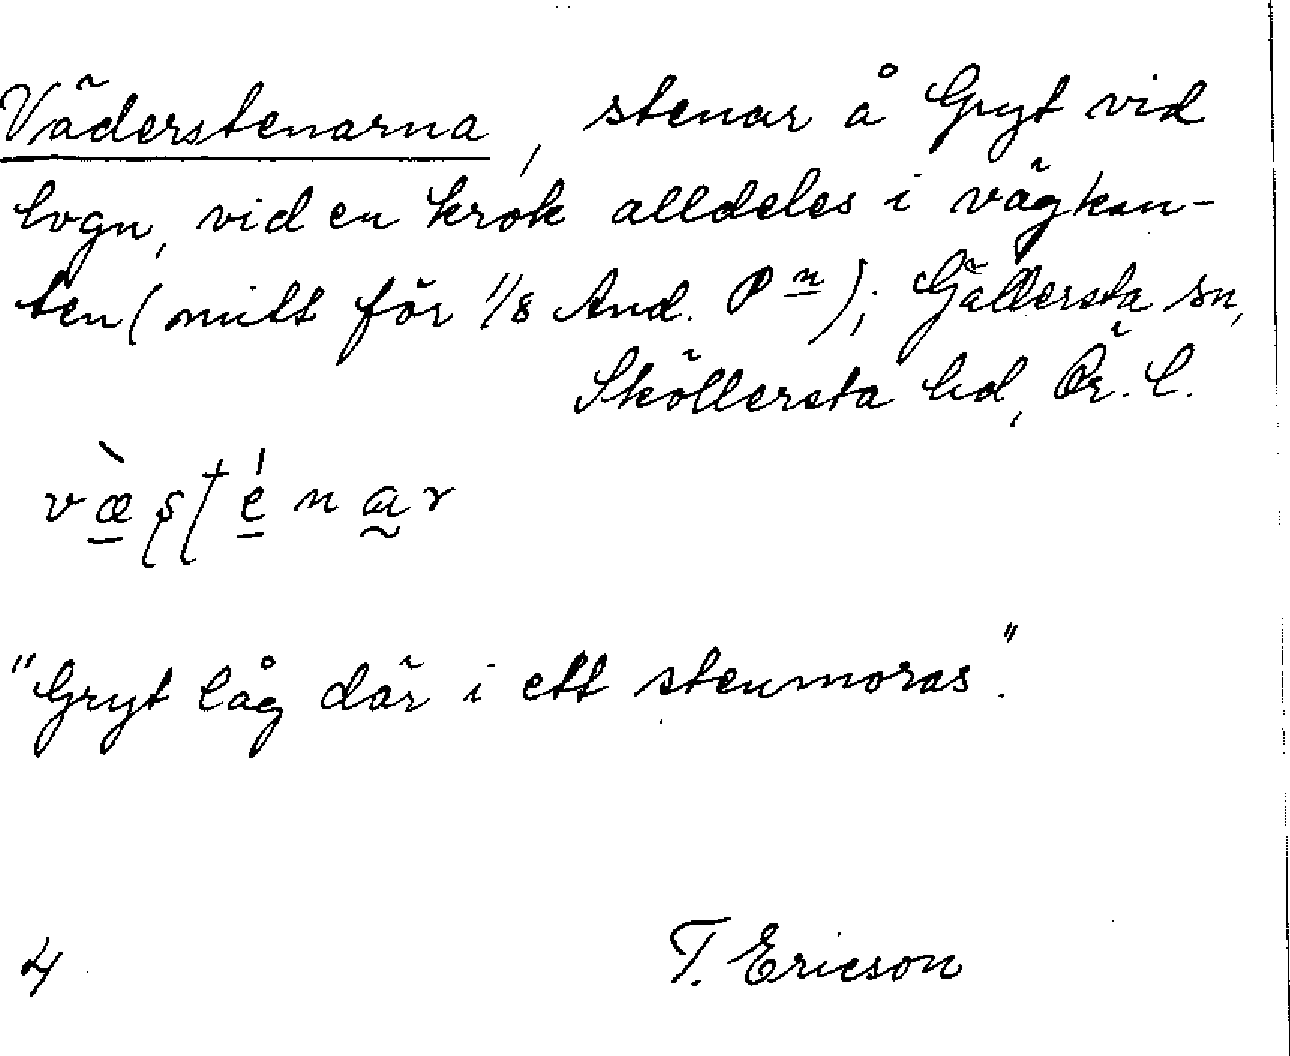 Väderstenarna, stenar å Gryt vid
lvgn, vid en krok alldeles i vägkan-
ten (mitt för 1/8 And. Pn); Gällersta sn,
Sköllersta hd, Ör. l.
væ̀ʂʈénar
"Gryt låg där i ett stenmoras".
4 T. Ericson